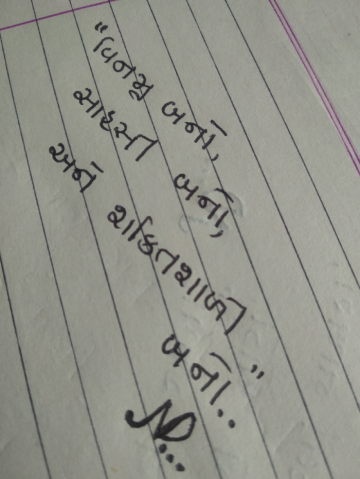 "વિનમ્ર બનો,
સાહસી બનો,
અને શક્તિશાળી
બનો.."
N...